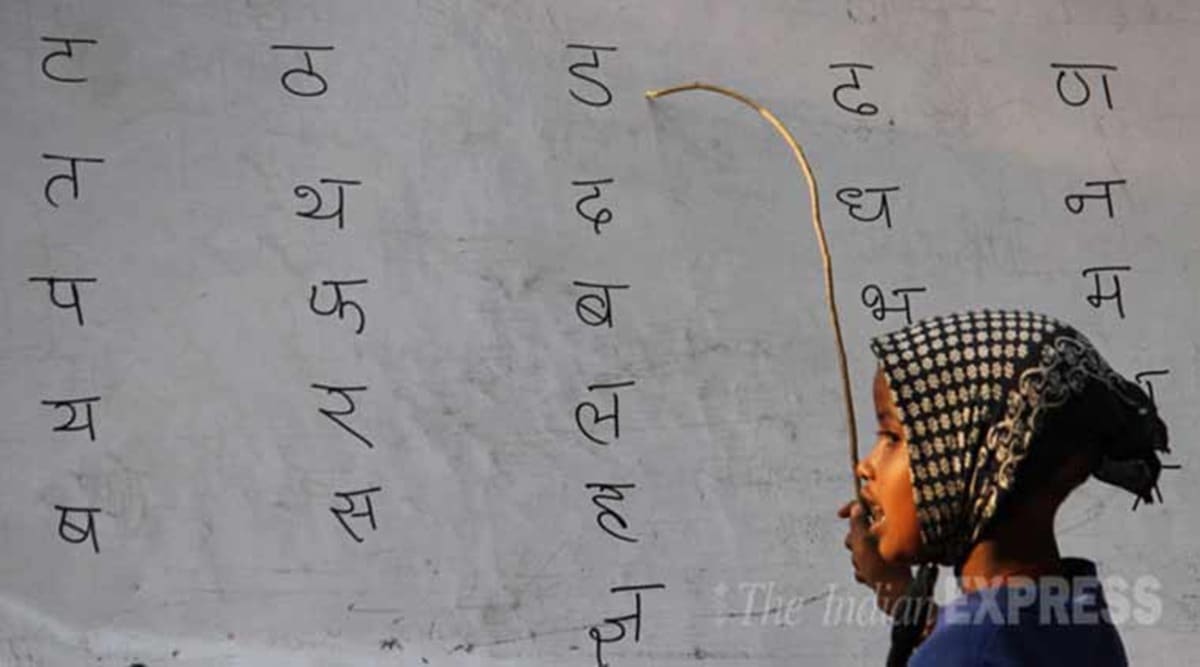 ट ठ ड ढ ण
त थ द ध न
प फ ब भ म
य र ल
ष स ह
क्ष
The Indian EXPRESS